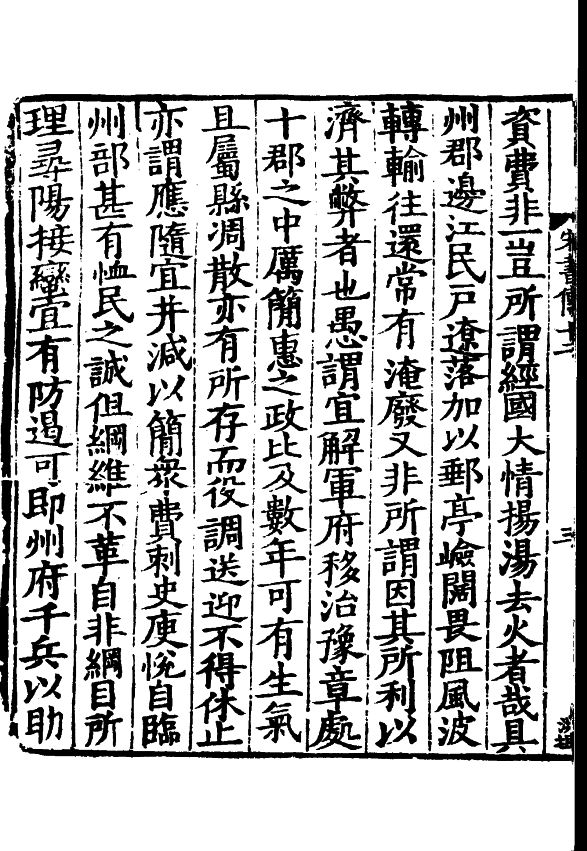 資費非一豈所謂經國大情揚湯去火者哉具
州郡邊江民戸遼落加以郵亭嶮闊畏阻風波
轉輸往還常有淹廢又非所謂因其所利以
濟其弊者也愚謂宜解軍府移治豫章處
十郡之中厲簡惠之政比及數年可有生氣
且屬縣凋散亦有所存而役調送迎不得休止
亦謂應隨宜并減以簡衆費刺史庾恱自臨
州部甚有恤民之誠但綱維不革自非綱目所
理尋陽接蠻宜有防遏可即州府千兵以助